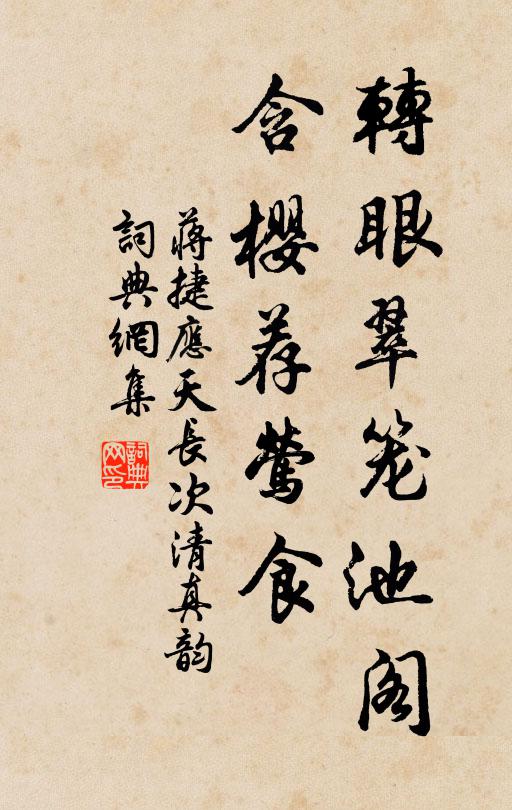 轉眼翠笼池阁
含櫻荐鶯食
蒋捷應天長次清真韵
詞典網集
詞典网印